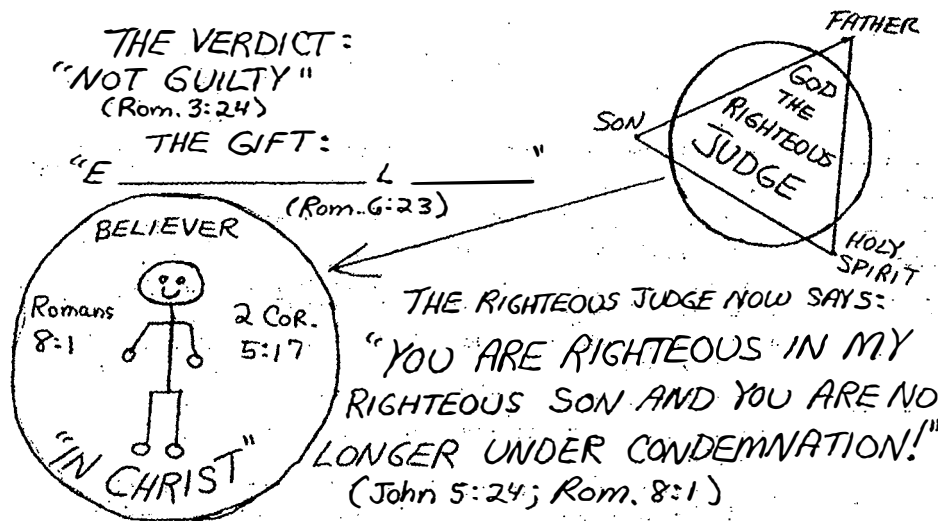 THE VERDICT:
"NOT GUILTY"
(Rom. 3:24)
THE GIFT:
"E ____________ L ______"
(Rom. 6:23)
FATHER
SON
HOLY
SPIRIT
GOD
THE
RIGHTEOUS
JUDGE
BELIEVER
Romans
8:1
2 COR.
5:17
"IN CHRIST"
THE RIGHTEOUS JUDGE NOW SAYS:
"YOU ARE RIGHTEOUS IN MY
RIGHTEOUS SON AND YOU ARE NO
LONGER UNDER CONDEMNATION!"
(John 5:24; Rom. 8:1)